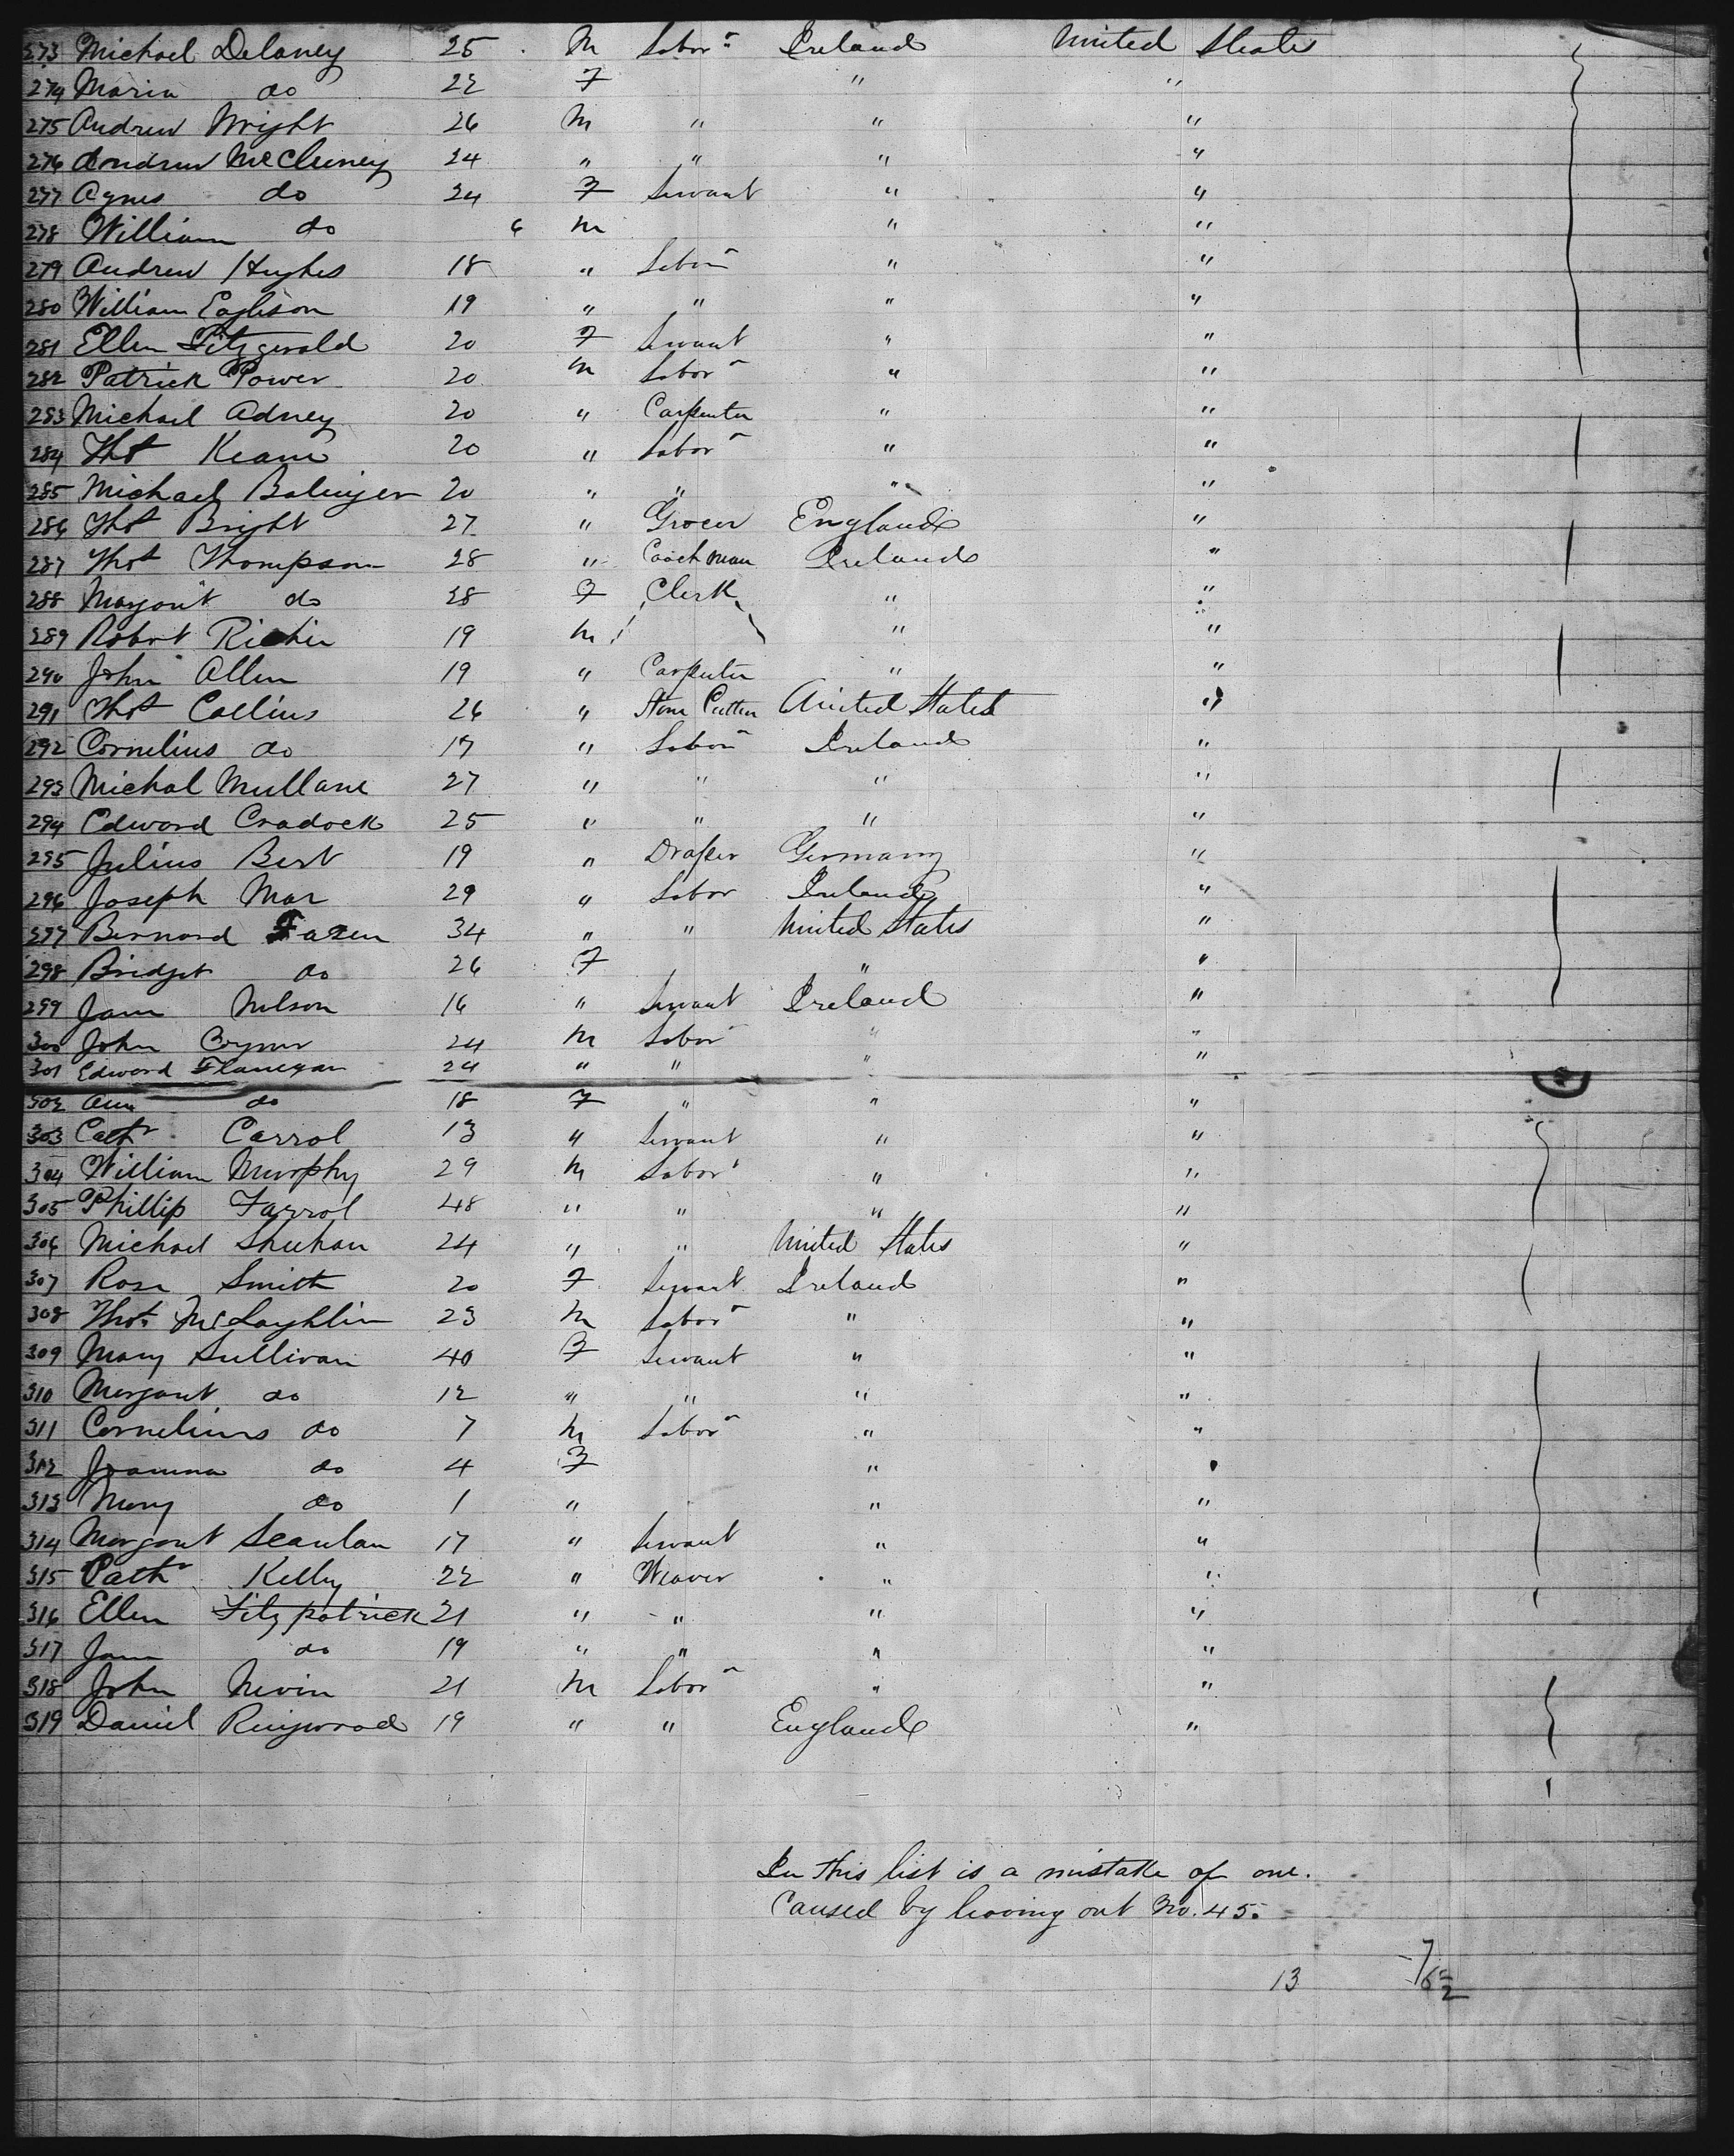 273 Michael Delaney 25 M Labor Ireland United States
274 Maria do 22 F " "
275 Andrew Wright 26 M " " "
276 Andrew McCluney 24 " " " "
277 Agnes do 24 F Servant " "
278 William do 6 M " "
279 Andrew Hughes 18 " Labor " "
280 William Eagleson 19 " " " "
281 Ellen Fitzgerald 20 F Servant " "
282 Patrick Power 20 M Labor " "
283 Michael Adney 20 " Carpenter " "
284 Thos Keane 20 " Labor " "
285 Michael Balinger 20 " " " "
286 Thos Bright 27 " Grocer England "
287 Thos Thompson 28 " Coachman Ireland "
288 Margaret do 28 F Clerk " "
289 Robert Richie 19 M " "
290 John Allen 19 " Carpenter " "
291 Thos Collins 26 " Stone Cutter United States "
292 Cornelius do 17 " Labor Ireland "
293 Michal Mullane 27 " " " "
294 Edward Cradock 25 " " " "
295 Julius Bert 19 " Draper Germany "
296 Joseph Mar 29 " Labor Ireland "
297 Bernard Fazen 34 " " United States "
298 Bridget do 26 F " "
299 Jane Nelson 16 " Servant Ireland "
300 John 24 M Labor " "
301 Edward Flanegan 24 " " " "
302 Ann do 18 F " " "
303 Cath Carrol 13 " Servant " "
304 William Murphy 29 M Labor " "
305 Phillip Farrol 48 " " " "
306 Michael Sheehan 24 " " United States "
307 Rose Smith 20 F Servant Ireland "
308 Thos McLaughlin 23 M Labor " "
309 Mary Sullivan 40 F Servant " "
310 Margaret do 12 " " " "
311 Cornelius do 7 M Labor " "
312 Joanna do 4 F " "
313 Mary do 1 " " "
314 Margaret Scanlan 17 " Servant " "
315 Cath Kelly 22 " Weaver " "
316 Ellen Fitzpatrick 21 " " " "
317 Jane do 19 " " " "
318 John Nevin 21 M Labor " "
319 Daniel Ringwood 19 " " England "
In this list is a mistake of one.
Caused by leaving out No. 45.
13